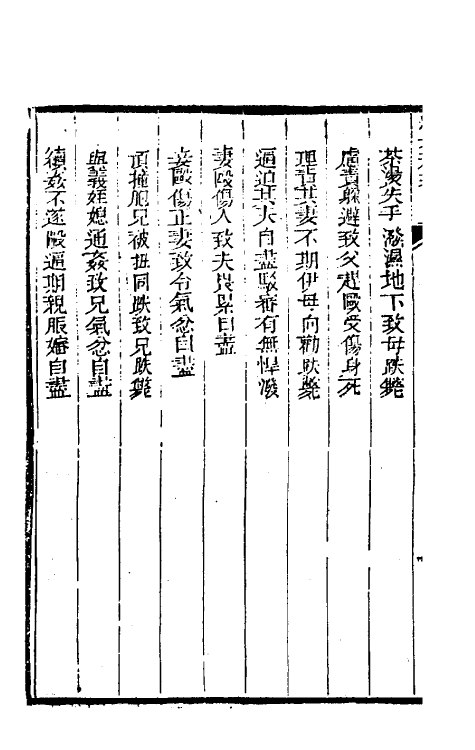 茶湯失手潑濕地下致母跌斃
處責躲避致父趕毆受傷身死
理責其妻不期伊母向勸跌斃
逼迫其夫自盡駁審有無悍潑
妻毆傷人致夫畏累自盡
妾毆傷正妻致令氣忿自盡
頂撞胞兄被扭同跌致兄跌斃
與義姪媳通姦致兄氣忿自盡
續姦不遂毆逼期親服嬸自盡